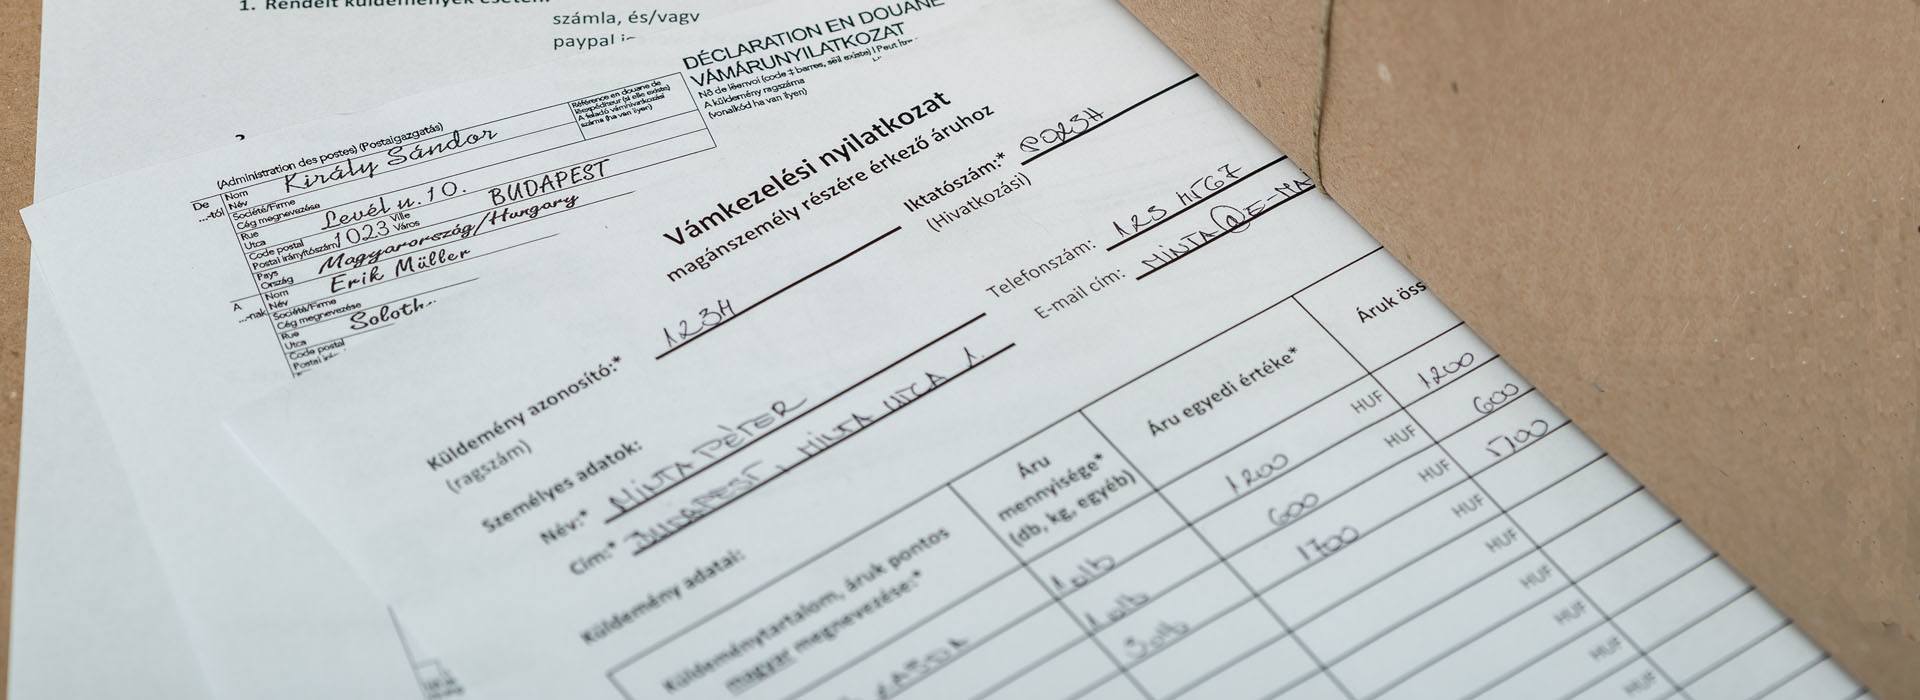 1. Rendelt küldemények esetén:
számla, és/vagy
paypal
DÉCLARATION EN DOUANE
VÁMÁRUNYILATKOZAT
(code à barres, s'il existe)
A küldemény ragszáma
(vonalkód ha van ilyen)
(Administration des postes) (Postaigazgatás)
Référence en douane de
száma (ha van ilyen)
De
...-tól
Nom
Név
Király Sándor
Société/Firme
Cég megnevezése
Rue
Utca
Levél u. 10.
Code postal
Postai irányítószám
1023
Ville
Város
BUDAPEST
Pays
Ország
Magyarország/Hungary
A
...-nak
Nom
Név
Erik Müller
Société/Firme
Cég megnevezése
Rue
Utca
Soloth
Code postal
Postai
Vámkezelési nyilatkozat
magánszemély részére érkező áruhoz
Iktatószám:*
(Hivatkozási)
Küldemény azonosító:* 1234
(ragszám)
Telefonszám: 123 4567
E-mail cím: MINTA@E-MA
Személyes adatok:
Név:* MINTA PÉTER
Cím:* BUDAPEST, MINTA UTCA 1.
Küldemény adatai:
Küldeménytartalom, áruk pontos
magyar megnevezése:*
Áru
mennyisége*
(db, kg, egyéb)
Áru egyedi értéke*
Áruk öss
1 db 1200 HUF 1200
1 db 600 HUF 600
3 db 1700 HUF 5100
HUF
HUF
HUF
HUF
HUF
HUF